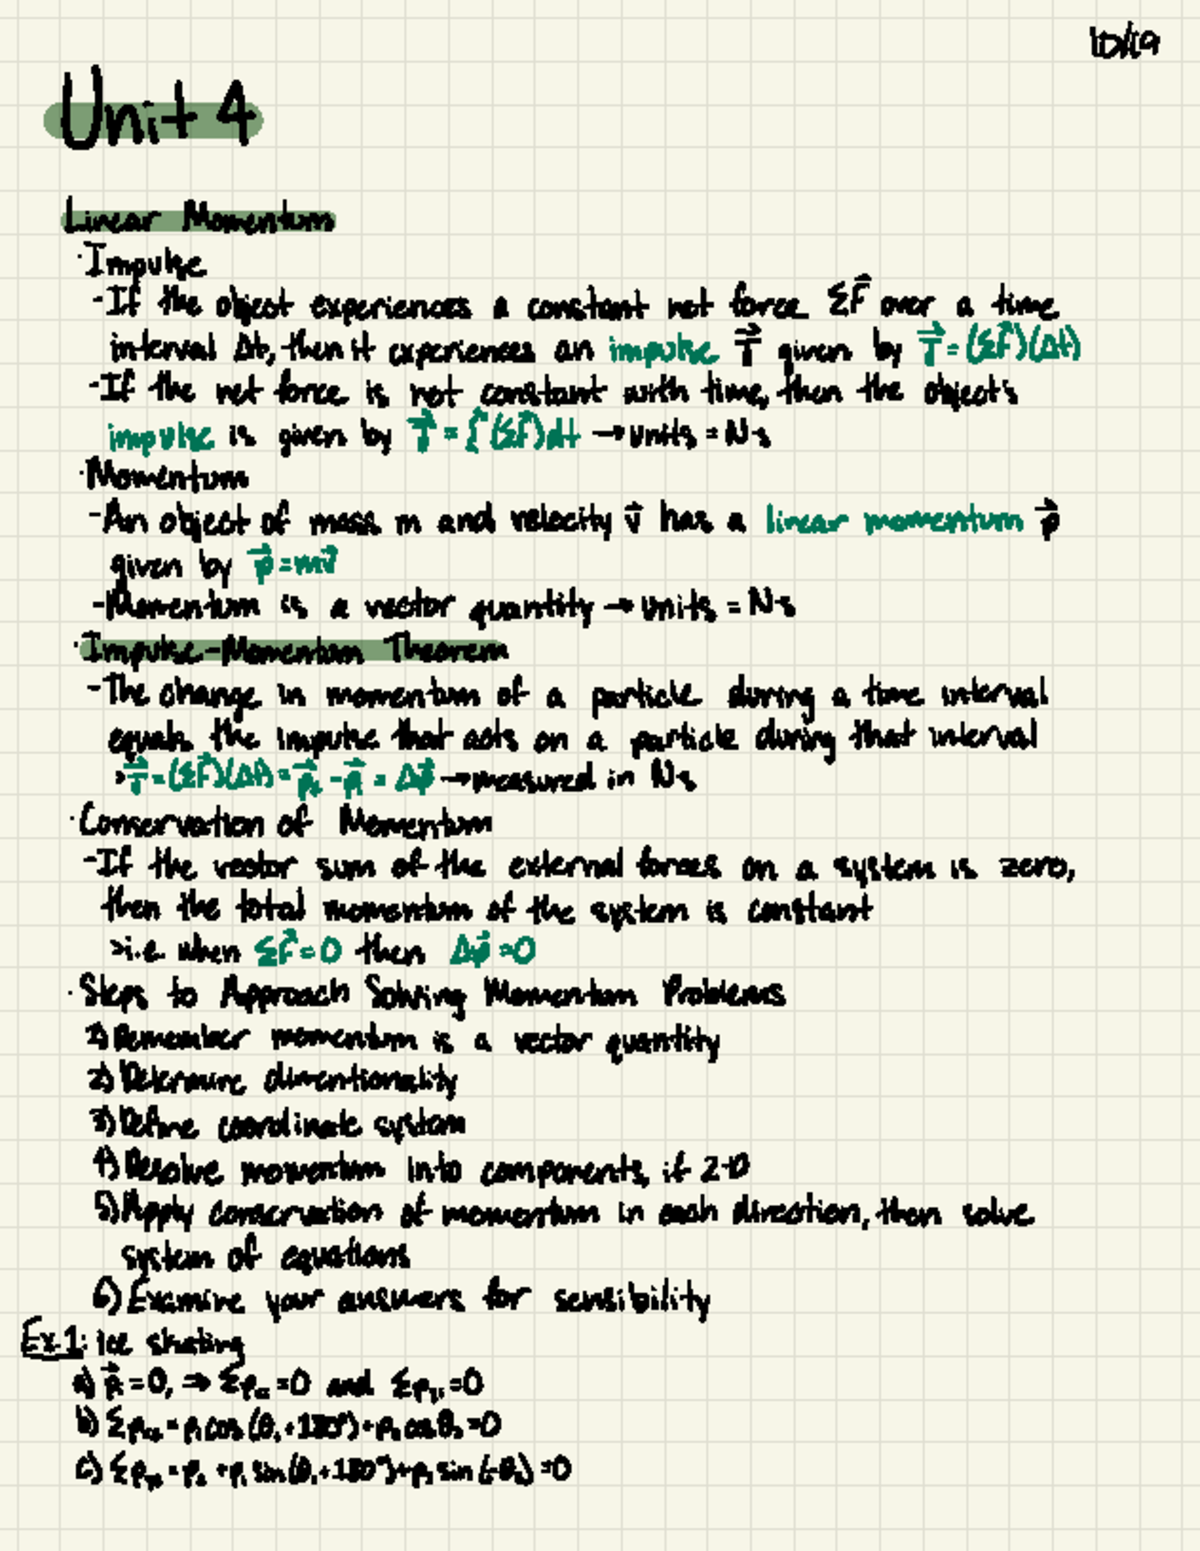 10/19
Unit 4
Linear Momentum
·Impulse
-If the object experiences a constant net force ΣF⃗ over a time
interval Δt, then it experiences an impulse J⃗ given by J⃗=(ΣF⃗)(Δt)
-If the net force is not constant with time, then the object's
impulse is given by J⃗=∫(ΣF⃗)dt →units = N·s
·Momentum
-An object of mass m and velocity v⃗ has a linear momentum p⃗
given by p⃗=mv⃗
-Momentum is a vector quantity → units = N·s
·Impulse-Momentum Theorem
-The change in momentum of a particle during a time interval
equals the impulse that acts on a particle during that interval
>J⃗=(ΣF⃗)(Δt)=p⃗₂-p⃗₁=Δp⃗ →measured in N·s
·Conservation of Momentum
-If the vector sum of the external forces on a system is zero,
then the total momentum of the system is constant
>i.e. when ΣF⃗=0 then Δp⃗=0
·Steps to Approach Solving Momentum Problems
1) Remember momentum is a vector quantity
2) Determine dimentionality
3) Define coordinate system
4) Resolve momentum into components, if 2-D
5) Apply conservation of momentum in each direction, then solve
system of equations
6) Examine your answers for sensibility
Ex 1: Ice skating
a) =0, ⇒ =0 and =0
b) cos(θ₁+180°)+ cosθ =0
c) sin(θ₁+180°)+ sin =0